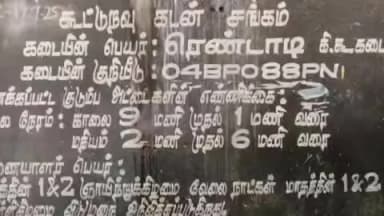 கூட்டுறவு கடன் சங்கம்
கடையின் பெயர்: ரெண்டாடி கி.கூகடை
கடையின் குறியீடு: 04BP088PN
க்கப்பட்ட குடும்ப அட்டைகளின் எண்ணிக்கை:
நேரம்: காலை 9 மணி முதல் 1 மணி வரை
மதியம் 2 மணி முதல் 6 மணி வரை
ணையாளர் பெயர்:
தின் 1&2 ஞாயிற்றுக்கிழமை வேலை நாட்கள் மாதத்தின் 1&2